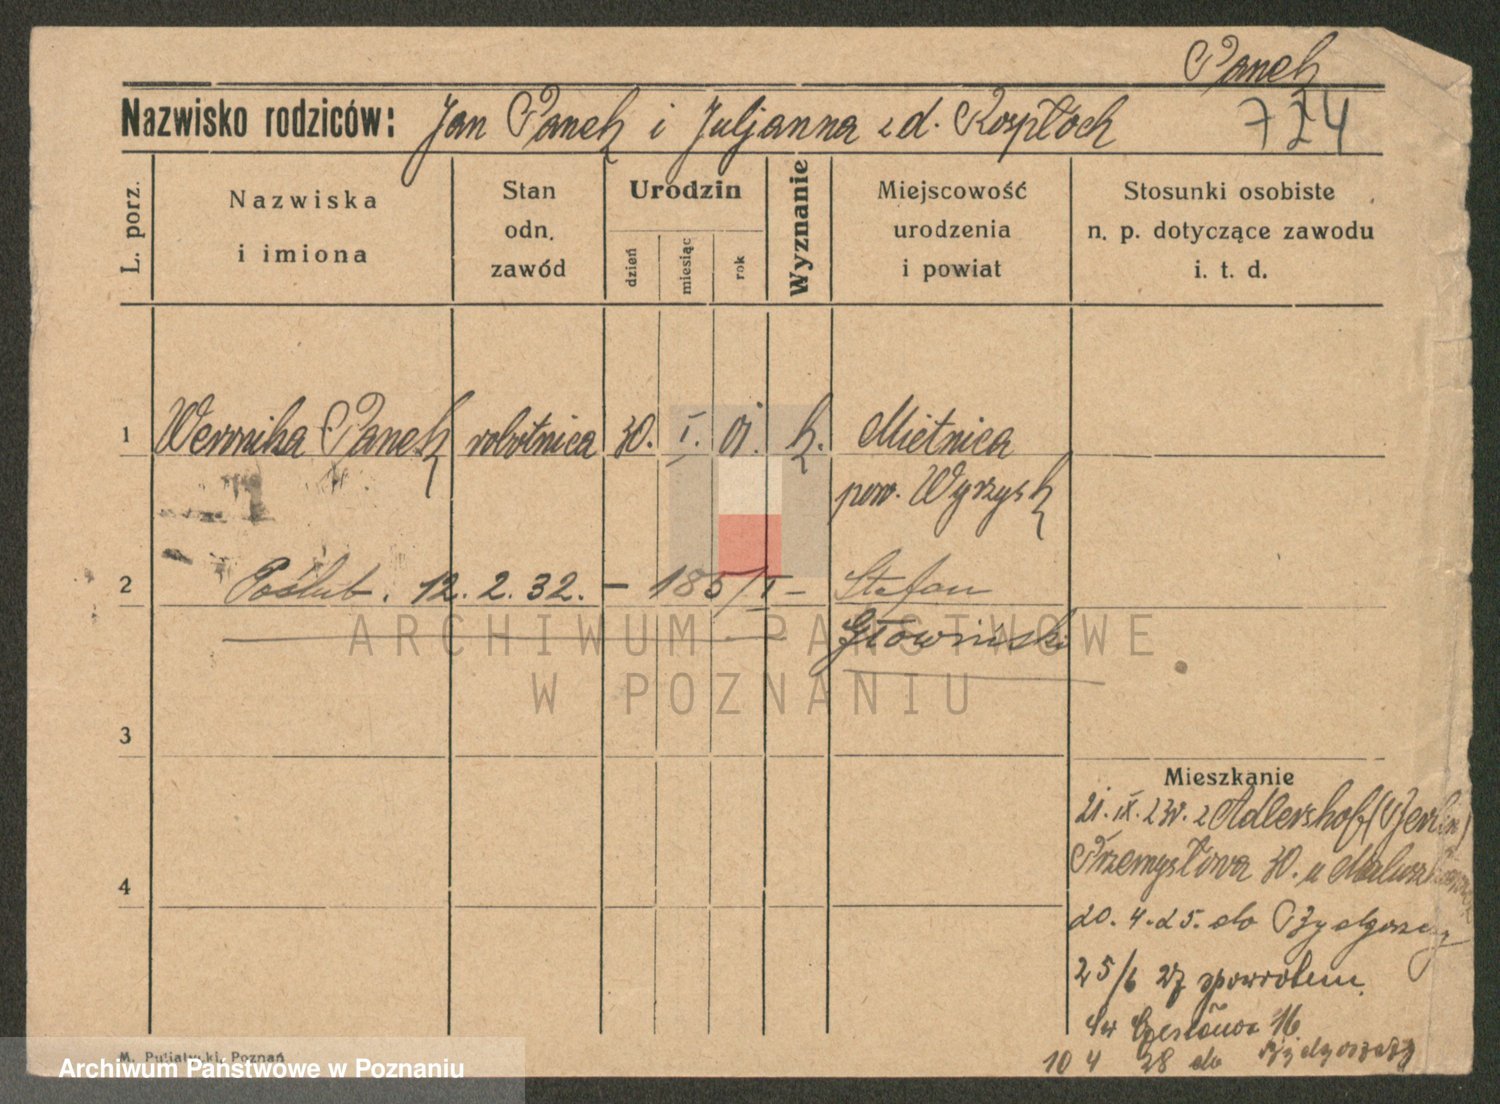 Panek
Nazwisko rodziców: Jan Panek i Juljanna z d. Rozpłoch 724
L. porz.
Nazwiska i imiona
Stan odn. zawód
Urodzin
dzień
miesiąc
rok
Wyznanie
Miejscowość urodzenia i powiat
Stosunki osobiste n. p. dotyczące zawodu i. t. d.
1 Weronika Panek robotnica 30. I. 01. k. Mietnica
pow. Wyrzysk
2 Poślub. 12. 2. 32. – 185/I – Stefan
Głowiński
ARCHIWUM PAŃSTWOWE
W POZNANIU
3
Mieszkanie
21. IX. 23r. z Adlershof (Berlin)
4 Przemysłowa 30. u
20. 4. 25. do Bydgoszczy
25/6 27 spowrotem
Czesława 16
10 4 28 do Bydgoszczy
M. Putiatycki, Poznań
Archiwum Państwowe w Poznaniu